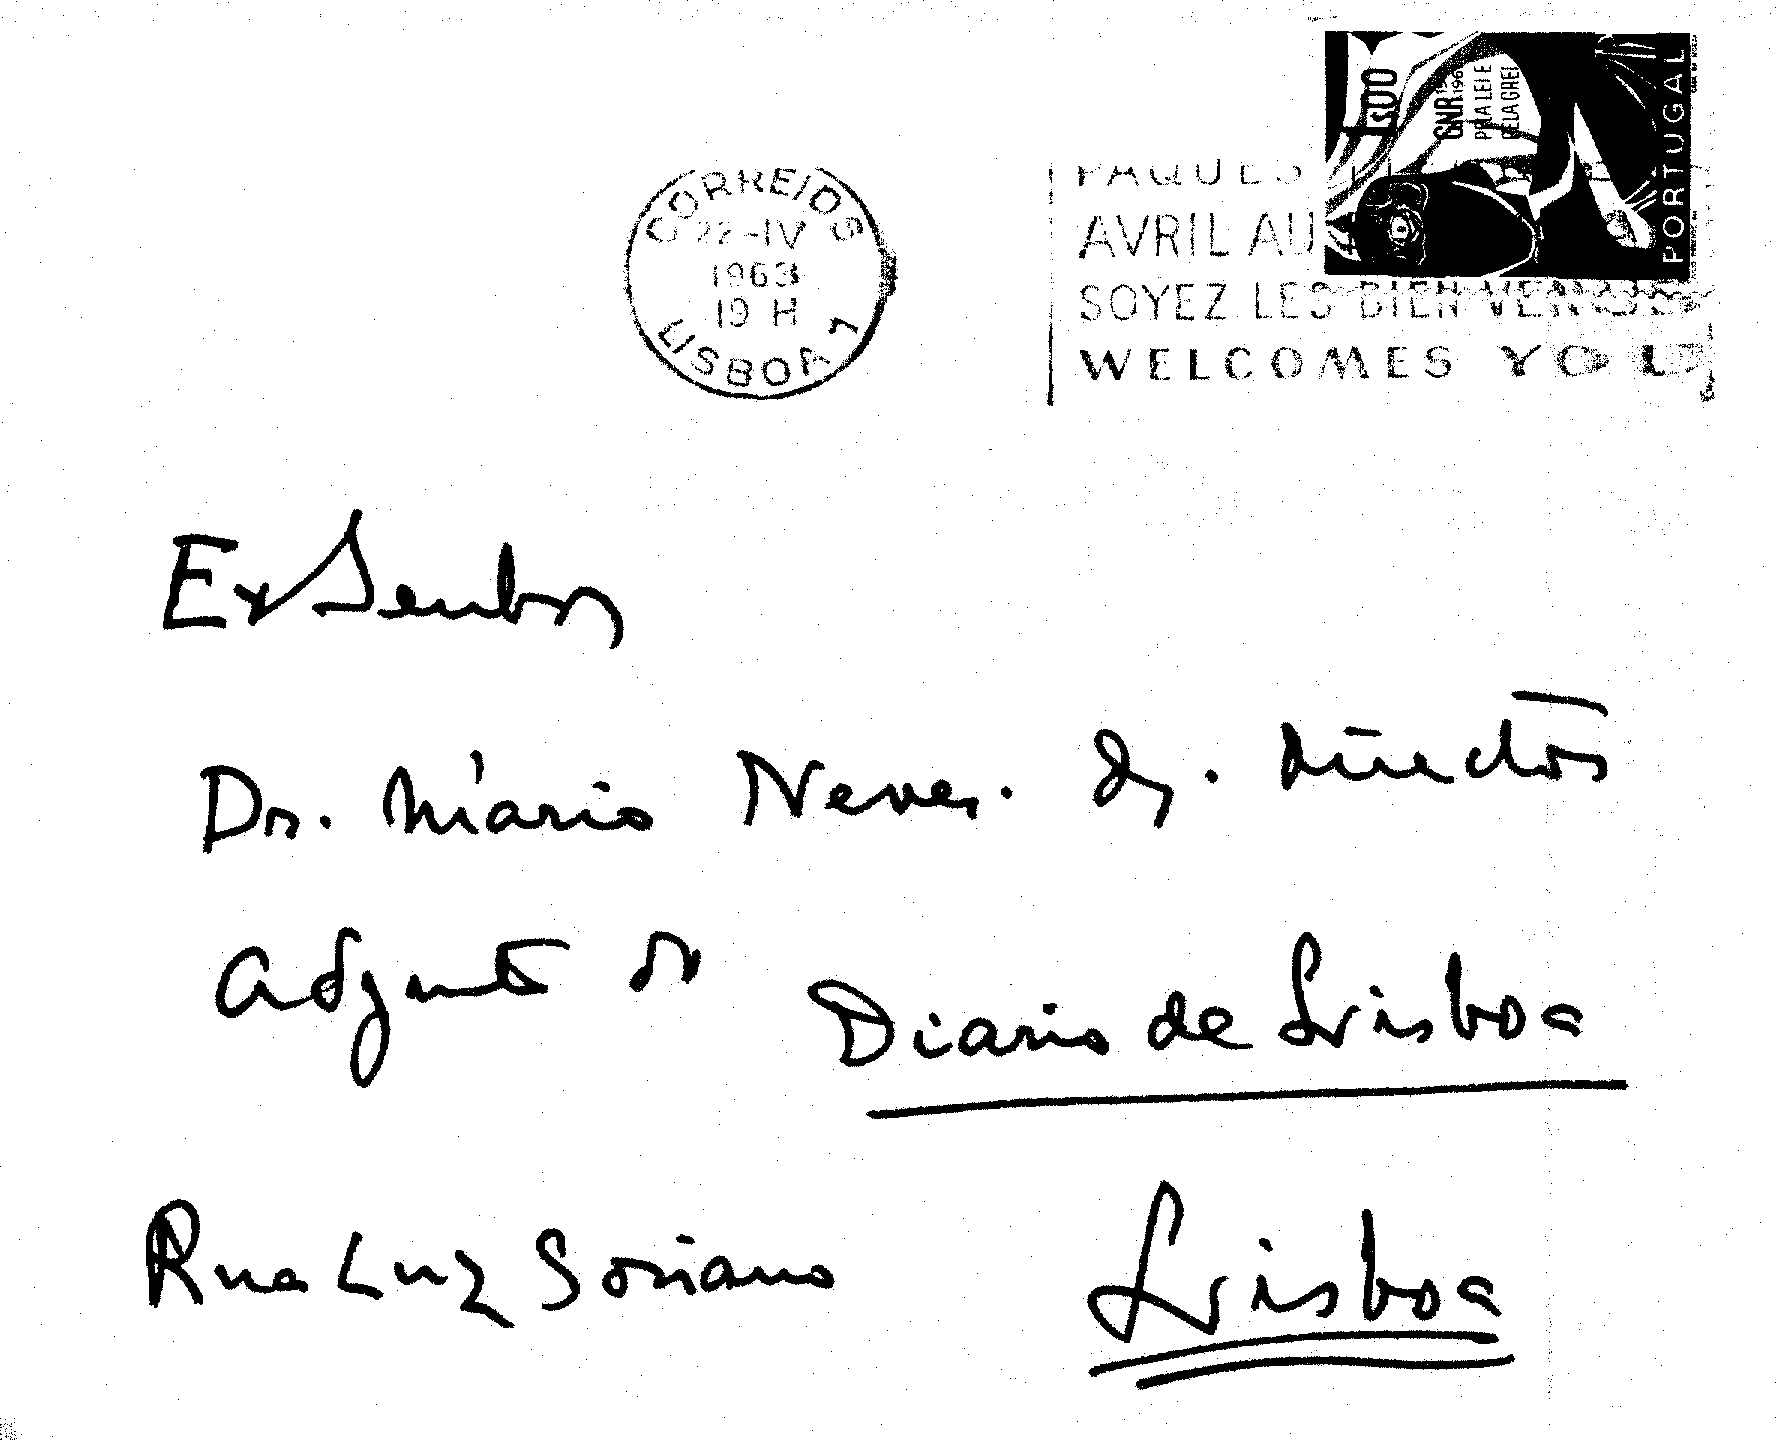 CORREIOS
22-IV
1963
19 H
LISBOA 1
PAQUES
AVRIL AU
SOYEZ LES BIEN VENUS
WELCOMES YOU
1$00
GNR
PELA LEI E
PELA GREI
PORTUGAL
Ex Senhor
Dr. Mário Neves. Dg. Director
adjunto do Diario de Lisboa
Rua Luz Soriano Lisboa